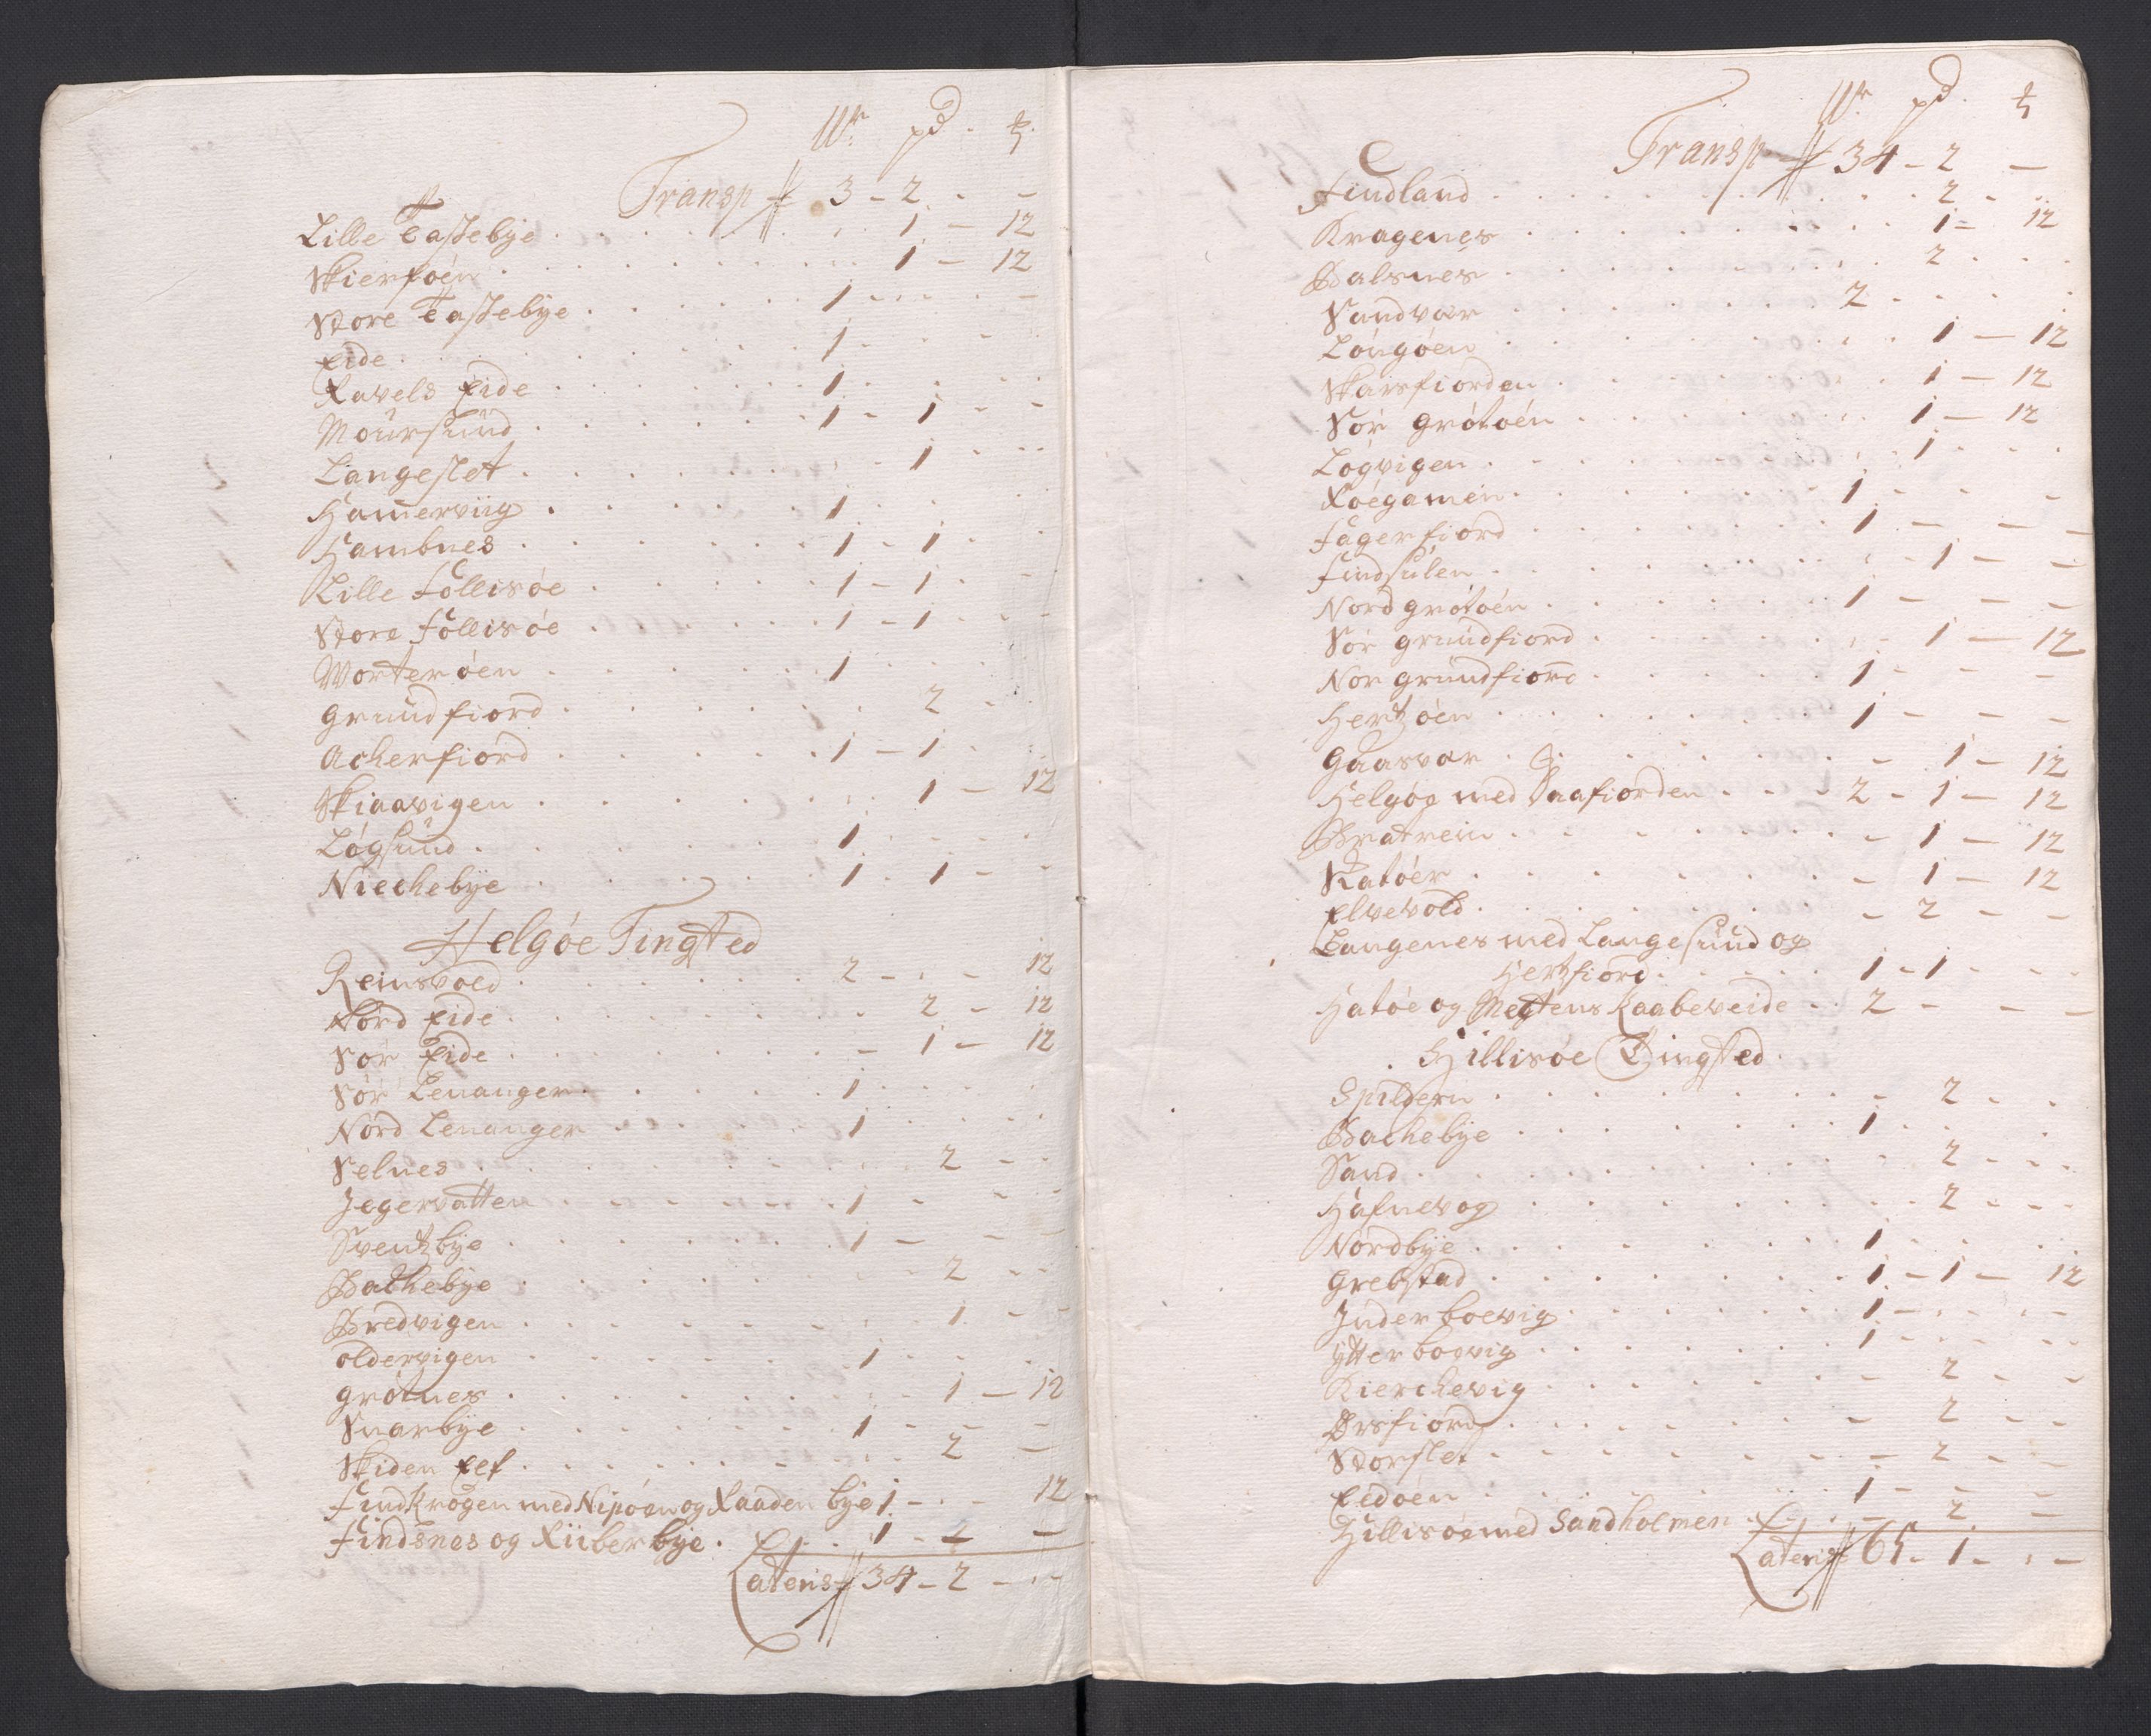 Wr pd. ℔.
Transp 3 - 2 . -
Lille Tastebye . . . 1 - 12
Skierfoen . . . 1 - 12
Store Tastebye . . . 1 - . . -
Eide . . . 1 . - -
Ravels Eide . . . 1 . . .
Moursund . . . 1 - 1 - -
Langeslet . . . 1 - -
Hamerviig . . . 1 . .
Hambnes . . . 1 - 1 .
Lille Follisøe . . . 1 - 1 . -
Store Follisøe . . . 1 - 1 . - -
Worterøen . . . 1 . . .
Grundfiord . . . 2 - .
Ackerfiord . . . 1 - 1 .
Skiaavigen . . . 1 - 12
Løgsund . . . 1 . . .
Niechebye . . . 1 . 1 - -
Helgøe Tingsted
Reinsvold . . . 2 - . - 12
Nord Eide . . . 2 - 12
Sør Eide . . . - 1 - 12
Sør Lenanger . . . 1 . . .
Nord Lenanger . . . 1 . . .
Selnes . . . 2 - .
Jegervatten . . . 1 - - -
Sventzbye . . . 1 - - -
Bachebye . . . 2 - -
Bredvigen . . . 1 - -
Oldervigen . . . 1 . . .
Grøtnes . . . 1 - 12
Snarbye . . . 1 - - -
Skiden Elf . . . 2 -
Findkrogen med Nipøen og Raaden bye 1 - . - 12
Findsnes og Riiberbye . . . 1 - 2 -
Lateris 34 - 2 - . -
Wr pd. ℔
Transp 34 - 2 -
Findland . . . 2 - .
Kragenes . . . 1 - 12
Balsnes . . . 2 . . .
Sandvær . . . 2 . . .
Løngøen . . . 1 - 12
Skarsfiorden . . . 1 - 12
Sør Grøtøen . . . 1 - 12
Løgvigen . . . 1 . . .
Røegamen . . . 1 . - -
Fagerfiord . . . 1 - - -
Findsulen . . . 1 - -
Nord Grøtøen . . . 1 - - -
Sør Grundfiord . . . 1 - 12
Nor Grundfiord . . . 1 - - -
Hertzøen . . . 1 - - -
Gaasvær . . . - 1 - 12
Helgøe med Saafiorden . . . 2 - 1 - 12
Bratrein . . . - 1 - 12
Katøer . . . - 1 - 12
Elvevold . . . - 2 - -
Langenes med Langesund og
Hertzfiord . . . 1 - 1 - - -
Hatøe og Mestens Kaabeveide . . 2 - - -
Hillisøe Tingsted
Spildern . . . - 2 - .
Bachebye . . . 1 . . .
Sand . . . 2 - - -
Hafnevog . . . 2 - - -
Nordbye . . . 1 . . .
Grebstad . . . 1 - 1 - 12
Inderboevig . . . 1 - . . -
Ytterboevig . . . 1 - . . -
Kierchevig . . . - 2 - -
Ørsfiord . . . - 2 - -
Storslet . . . - 2 - -
Eedøen . . . 1 - - -
Hillisøe med Sandholmen . . . - 2 -
Lateris 65 - 1 - . -